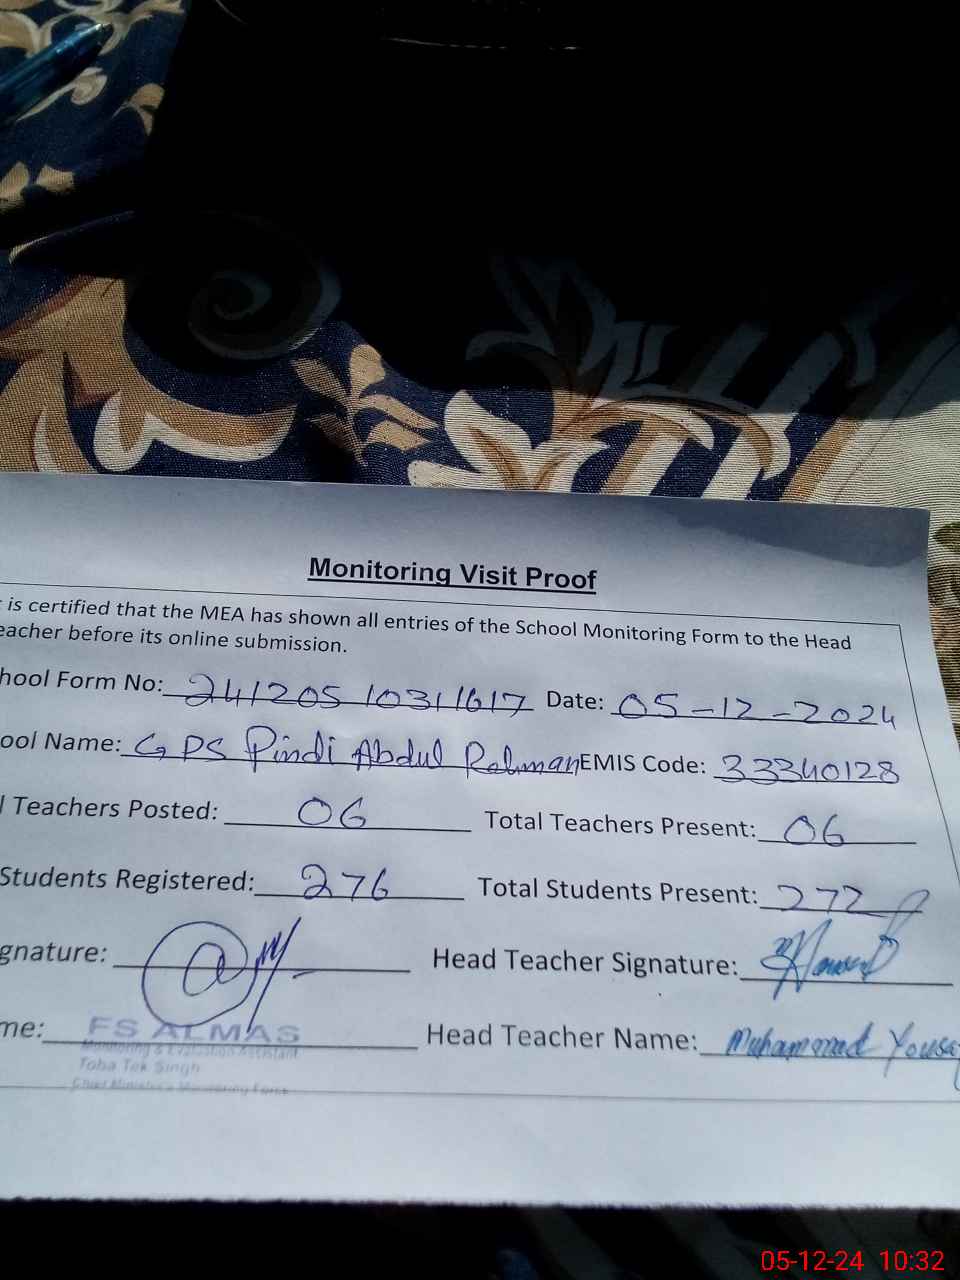 Monitoring Visit Proof
is certified that the MEA has shown all entries of the School Monitoring Form to the Head
eacher before its online submission.
hool Form No: 24120510311617 Date: 05-12-2024
ool Name: GPS Pindi Abdul Rehman EMIS Code: 33340128
l Teachers Posted: 06 Total Teachers Present: 06
Students Registered: 276 Total Students Present: 272
gnature: Head Teacher Signature:
me: FS ALMAS Head Teacher Name: Muhammad Yousa
Monitoring & Evaluation Assistant
Toba Tek Singh
Chief Minister's Monitoring Force
05-12-24 10:32